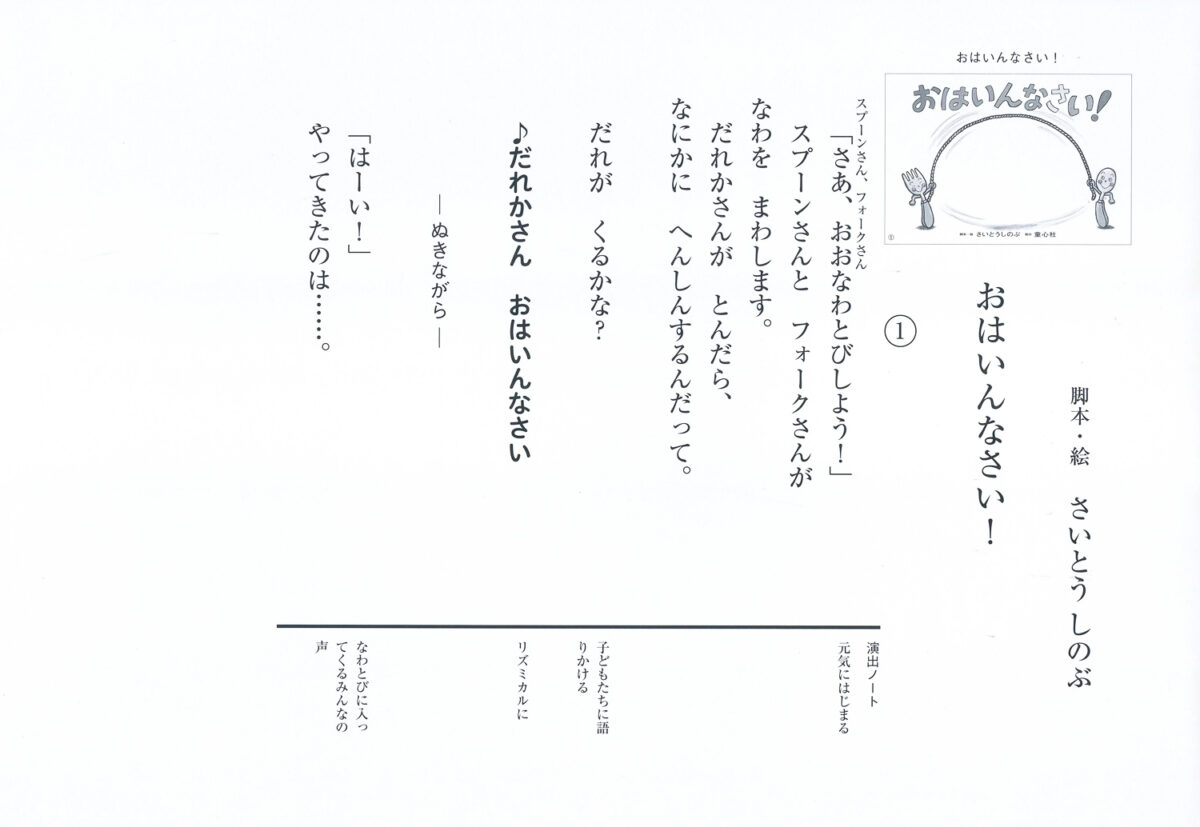 おはいんなさい！
おはいんなさい！
脚本・絵 さいとうしのぶ 発行 童心社
①
脚本・絵　さいとう しのぶ
おはいんなさい！
①
スプーンさん、フォークさん
「さあ、おおなわとびしよう！」
スプーンさんと　フォークさんが
なわを　まわします。
だれかさんが　とんだら、
なにかに　へんしんするんだって。
だれが　くるかな？
♪だれかさん　おはいんなさい
―ぬきながら―
「はーい！」
やってきたのは……。
演出ノート
元気にはじまる
子どもたちに語
りかける
リズミカルに
なわとびに入っ
てくるみんなの
声